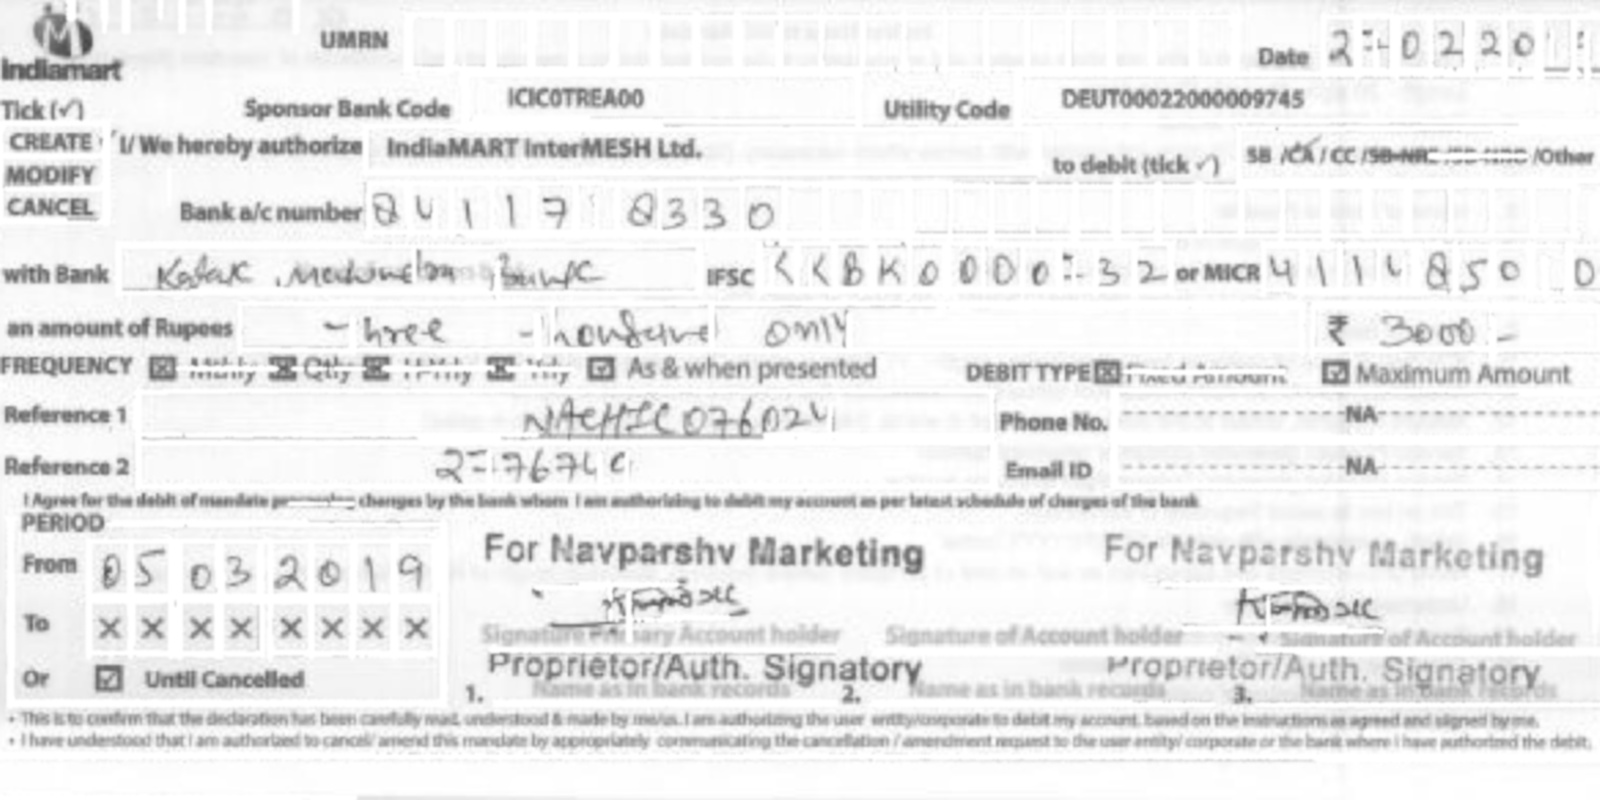 Indiamart
UMRN
Date
Tick (✓)
Sponsor Bank Code ICIC0TREA00 Utility Code DEUT00022000009745
CREATE I/ We hereby authorize IndiaMART InterMESH Ltd. to debit (tick ✓) SB /CA / CC /SB-NRE /SB-NRO /Other
MODIFY
CANCEL
Bank a/c number
with Bank Kotak Bank IFSC or MICR
an amount of Rupees only ₹ 3000
FREQUENCY Mthly Qtly Yrly As & when presented DEBIT TYPE Fixed Amount Maximum Amount
Reference 1 Phone No. NA
Reference 2 Email ID NA
I Agree for the debit of mandate changes by the bank whom I am authorizing to debit my account as per latest schedule of charges of the bank
PERIOD
From 05 03 2019
To X X X X X X X X
Or Until Cancelled
For Navparshv Marketing
Signature Primary Account holder
Proprietor/Auth. Signatory
1. Name as in bank records
Signature of Account holder
2. Name as in bank records
For Navparshv Marketing
Signature of Account holder
Proprietor/Auth. Signatory
3. Name as in bank records
• This is to confirm that the declaration has been carefully read, understood & made by me/us. I am authorizing the user entity/corporate to debit my account, based on the instructions as agreed and signed by me.
• I have understood that I am authorized to cancel/ amend this mandate by appropriately communicating the cancellation / amendment request to the user entity/ corporate or the bank where I have authorized the debit.